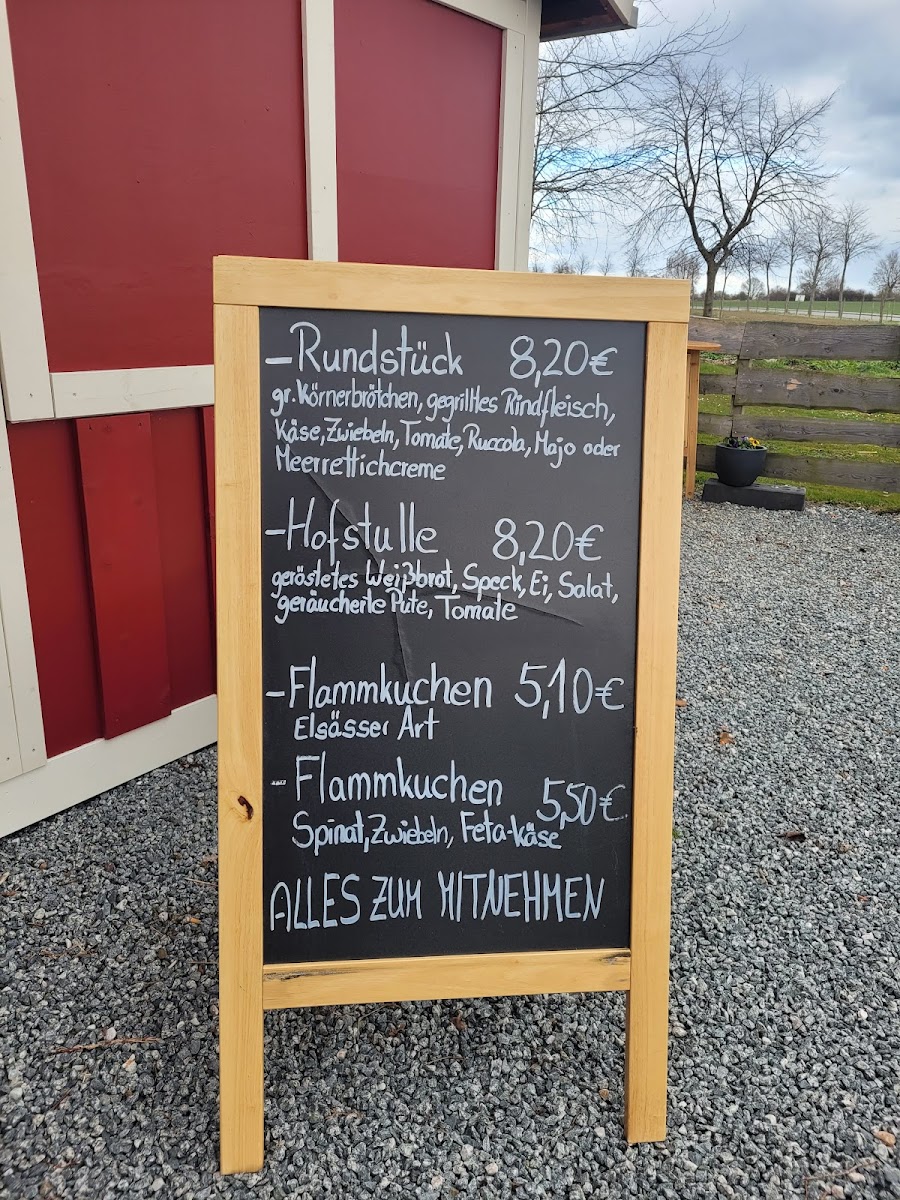 -Rundstück 8,20€
gr. Körnerbrötchen, gegrilltes Rindfleisch,
Käse, Zwiebeln, Tomate, Ruccola, Majo oder
Meerrettichcreme
-Hofstulle 8,20€
geröstetes Weißbrot, Speck, Ei, Salat,
geräucherte Pute, Tomate
-Flammkuchen 5,10€
Elsässer Art
- Flammkuchen 5,50€
Spinat, Zwiebeln, Feta-käse
ALLES ZUM MITNEHMEN